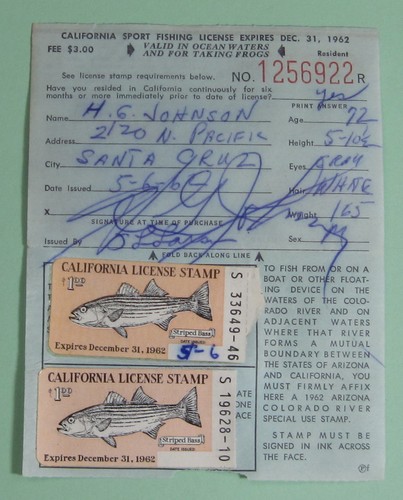 CALIFORNIA SPORT FISHING LICENSE EXPIRES DEC. 31, 1962
FEE $3.00 VALID IN OCEAN WATERS AND FOR TAKING FROGS Resident
See license stamp requirements below. NO. 1256922 R
Have you resided in California continuously for six yes
months or more immediately prior to date of license? PRINT ANSWER
Name H. G. JOHNSON Age 72
Address 2120 N. PACIFIC Height 5-10½
City SANTA CRUZ Eyes GRAY
Date Issued 5-6-6 Hair
X Weight 165
SIGNATURE AT TIME OF PURCHASE
Issued By Sex M
FOLD BACK ALONG LINE
CALIFORNIA LICENSE STAMP
$1.00
Striped Bass
DATE ISSUED
Expires December 31, 1962 5-6
S 33649-46
CALIFORNIA LICENSE STAMP
$1.00
Striped Bass
DATE ISSUED
Expires December 31, 1962
S 19628-10
TO FISH FROM OR ON A
BOAT OR OTHER FLOAT-
ING DEVICE ON THE
WATERS OF THE COLO-
RADO RIVER AND ON
ADJACENT WATERS
WHERE THAT RIVER
FORMS A MUTUAL
BOUNDARY BETWEEN
THE STATES OF ARIZONA
AND CALIFORNIA, YOU
MUST FIRMLY AFFIX
HERE A 1962 ARIZONA
COLORADO RIVER
SPECIAL USE STAMP.
STAMP MUST BE
SIGNED IN INK ACROSS
THE FACE.